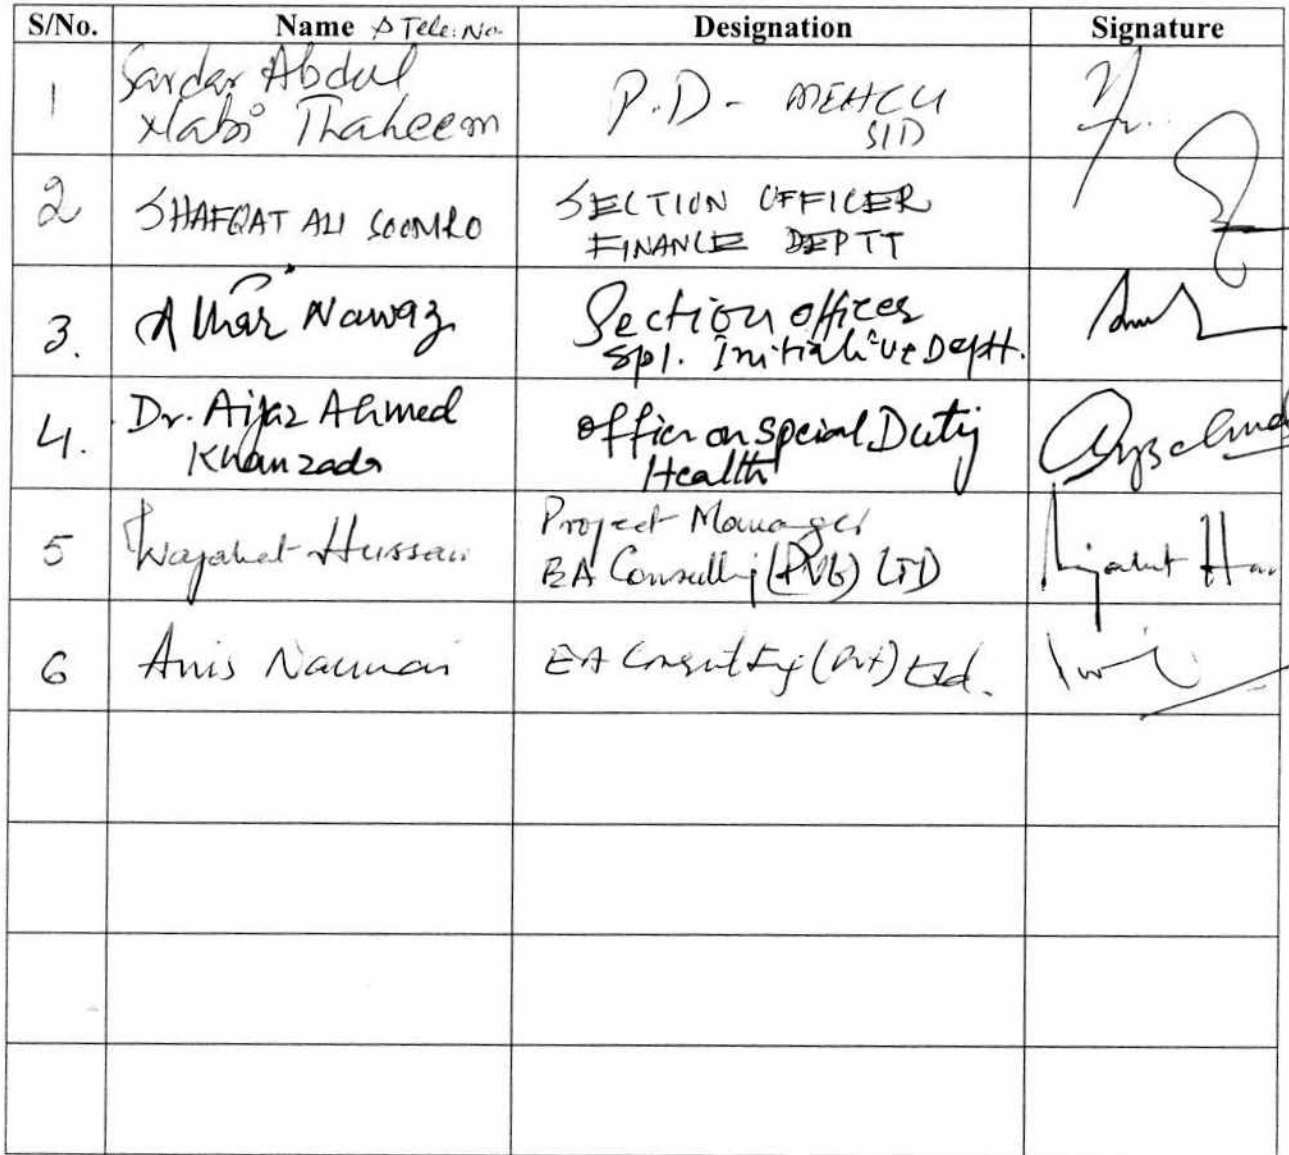 S/No. Name & Tele: No. Designation Signature
1 Sardar Abdul P.D - MEHCU
Nabi Thaheem SID
2 SHAFQAT ALI SOOMRO SECTION OFFICER
FINANCE DEPTT
3. Athar Nawaz Section officer
Spl. Initiative Deptt.
4. Dr. Aijaz Ahmed officer on special Duty
Khanzada Health
5 Wajahat Hussain Project Manager
EA Consulting (Pvt) LTD
6 Anis EA Consulting (Pvt) Ltd.